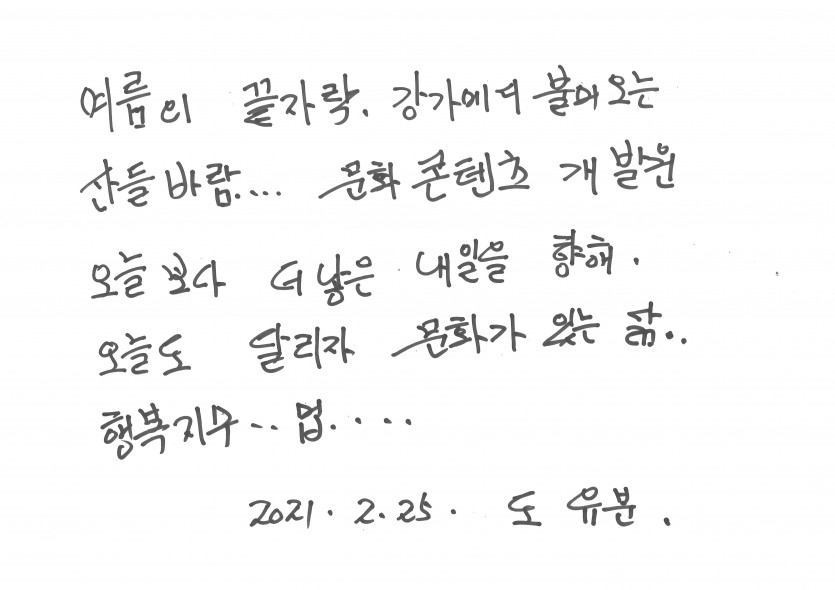 여름의 끝자락. 강가에서 불어오는
산들바람.... 문화콘텐츠 개발원
오늘보다 더 낳은 내일을 향해.
오늘도 달리자 문화가 있는 삶..
행복지수.. 업....
2021. 2. 25. 도 유분.